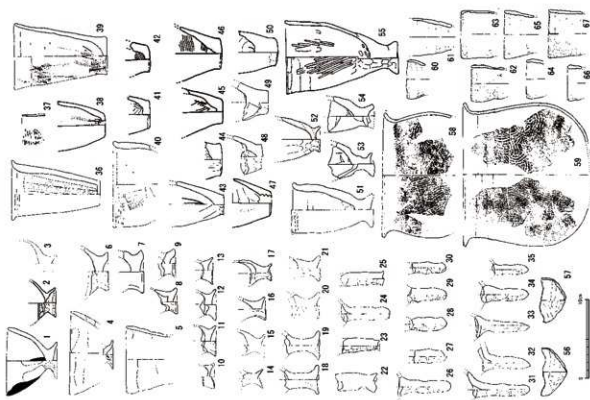 1
2
3
4
5
6
7
8
9
10
11
12
13
14
15
16
17
18
19
20
21
22
23
24
25
26
27
28
29
30
31
32
33
34
35
36
37
38
39
40
41
42
43
44
45
46
47
48
49
50
51
52
53
54
55
56
57
58
59
60
61
62
63
64
65
66
67
10cm